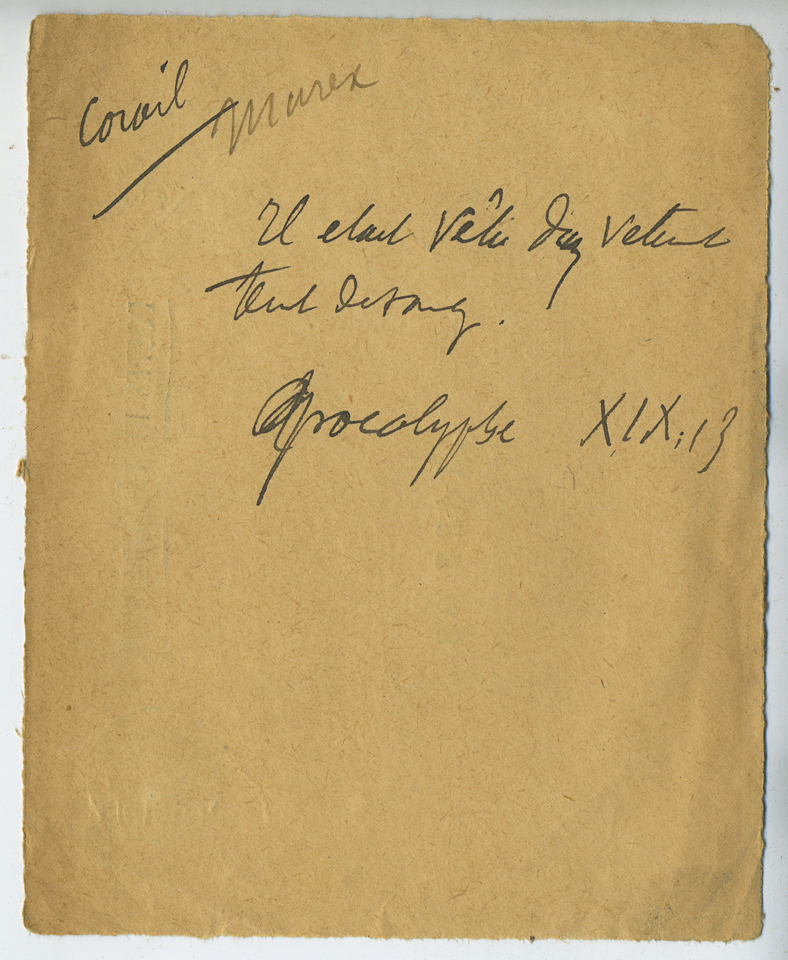 Corail Murex
Il etait Vêtu d'un Vetement
teint de sang.
Apocalypse XIX, 13